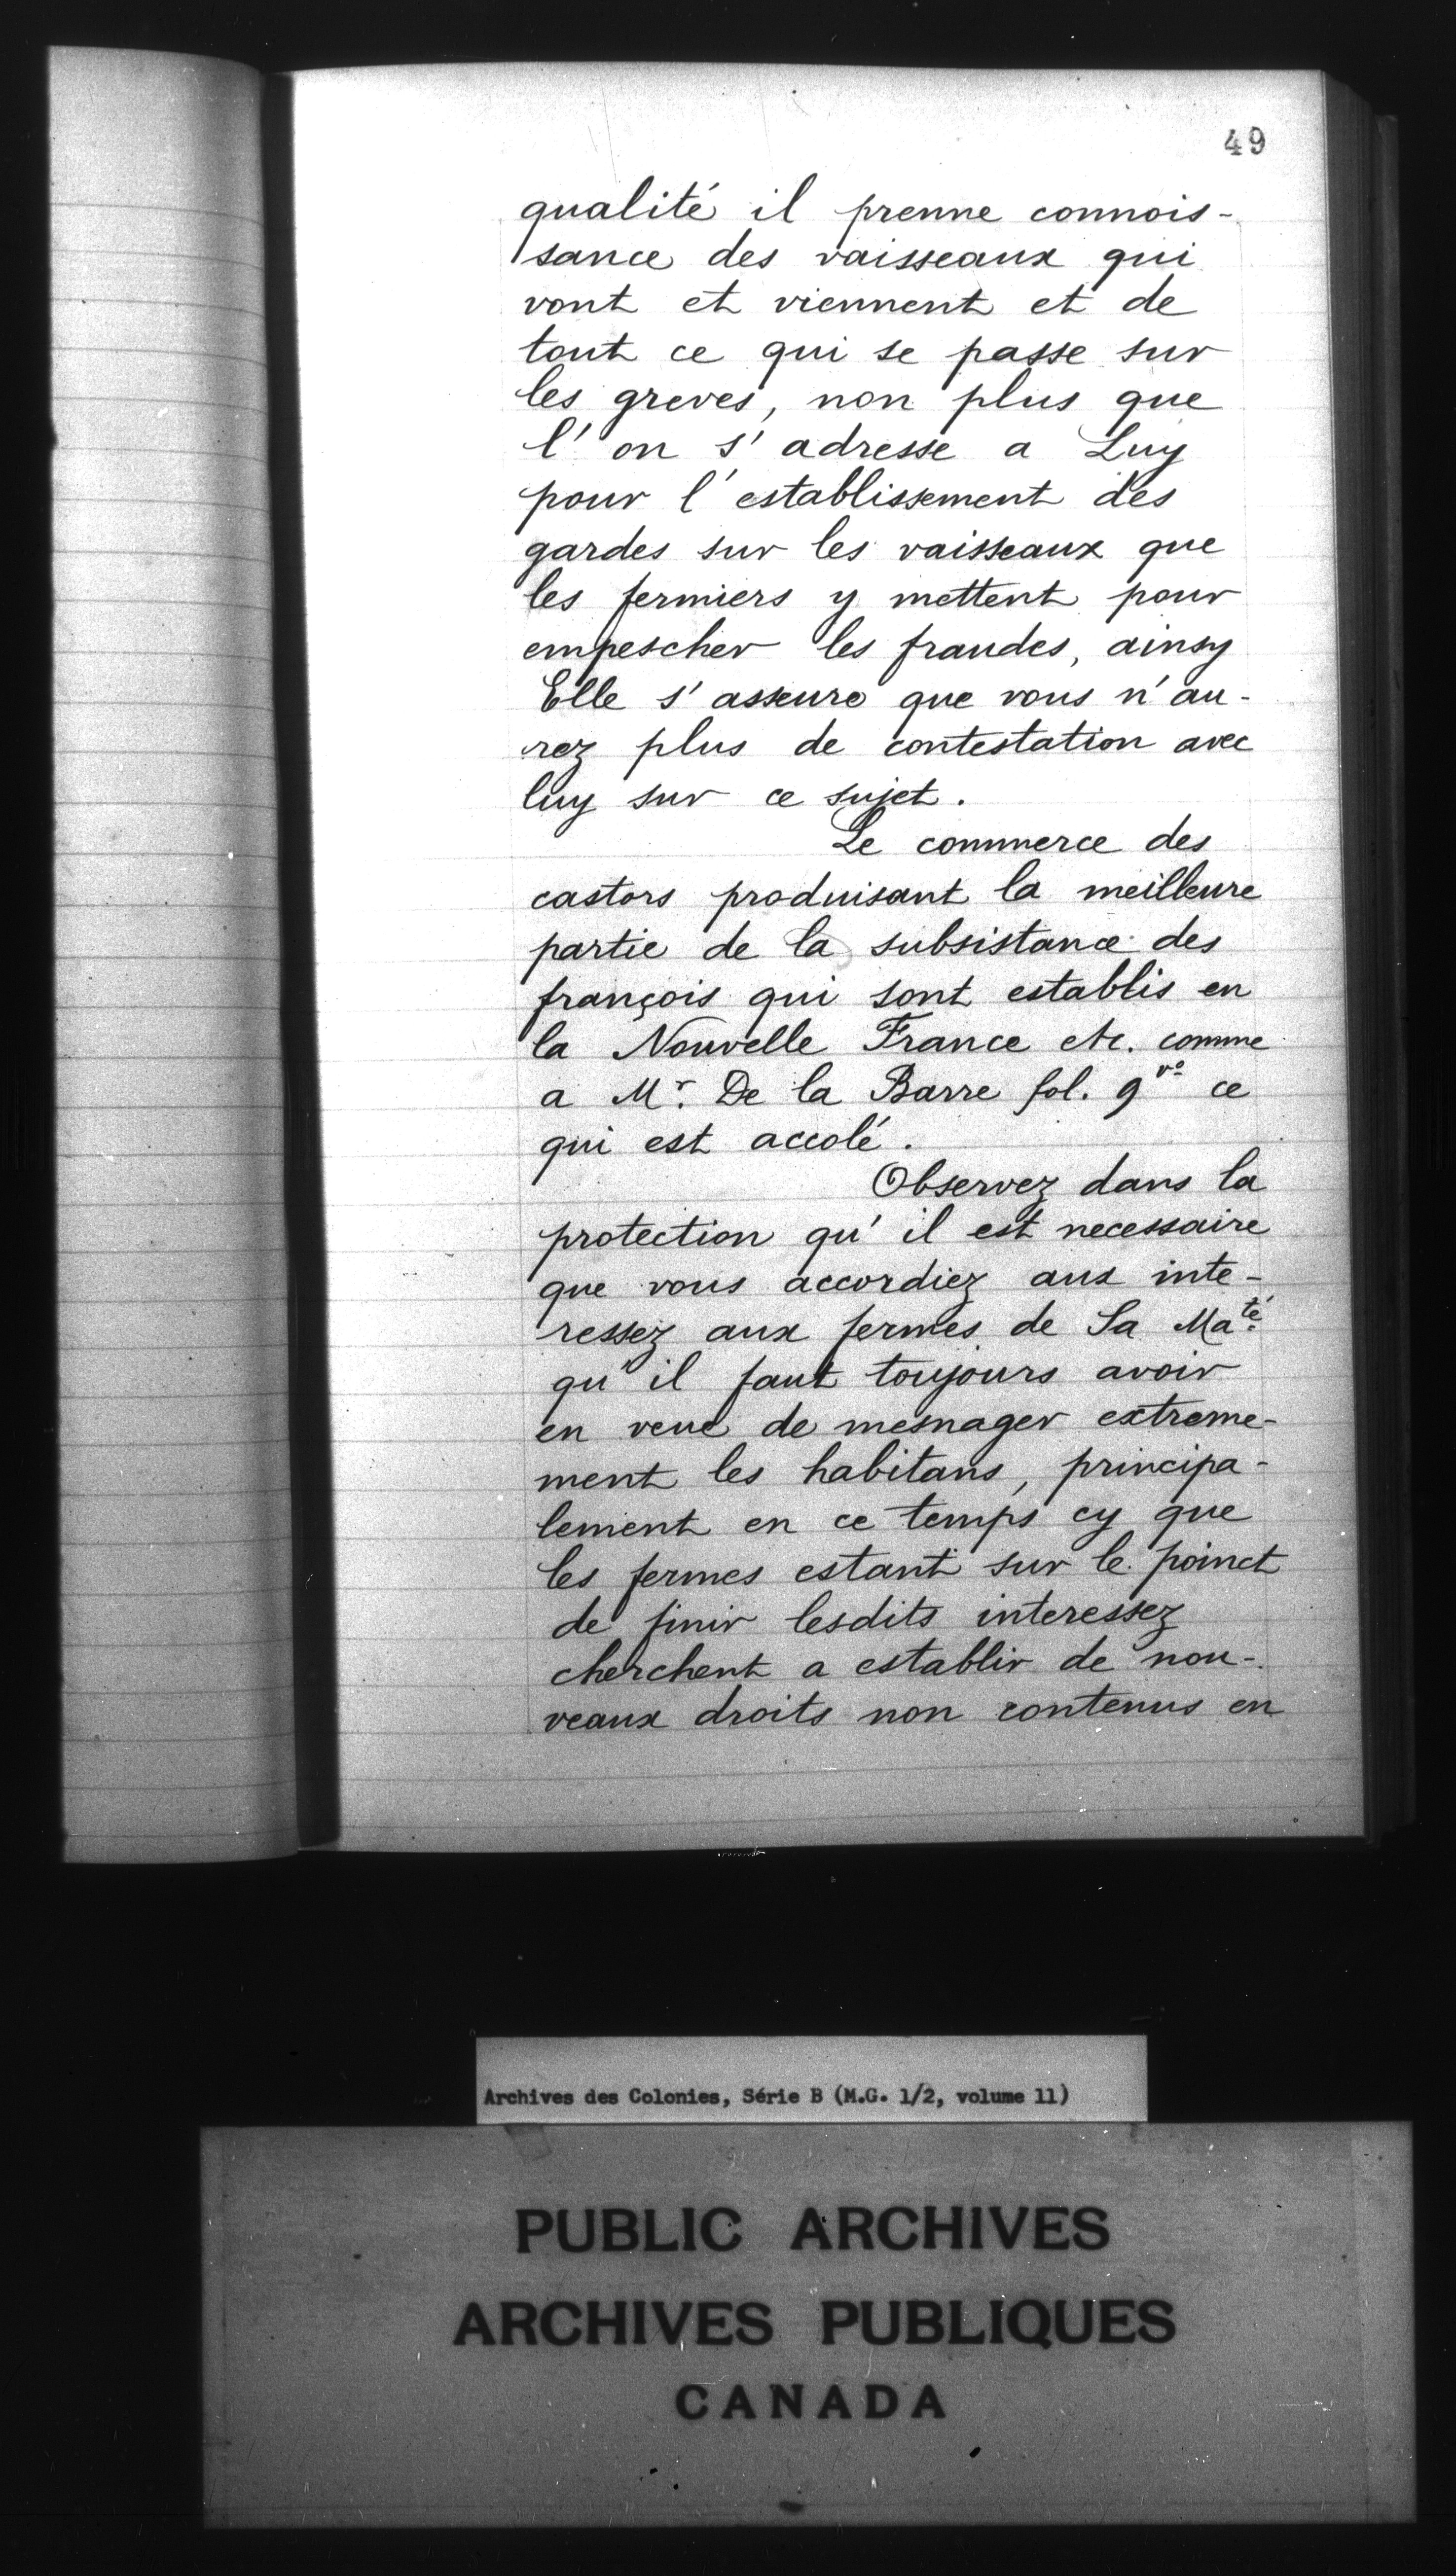 49
qualité il prenne connois-
sance des vaisseaux qui
vont et viennent et de
tout ce qui se passe sur
les greves, non plus que
l'on s'adresse a Luy
pour l'establissement des
gardes sur les vaisseaux que
les fermiers y mettent pour
empescher les fraudes, ainsy
Elle s'asseure que vous n'au-
rez plus de contestation avec
luy sur ce sujet.
Le commerce des
castors produisant la meilleure
partie de la subsistance des
françois qui sont establis en
la Nouvelle France etc. comme
a Mr. De la Barre fol. 9 vo ce
qui est accolé.
Observez dans la
protection qu'il est necessaire
que vous accordiez aux inte-
ressez aux fermes de Sa Maté.
qu'il faut toujours avoir
en veue de mesnager extreme-
ment les habitans, principa-
lement en ce temps cy que
les fermes estant sur le poinct
de finir lesdits interessez
cherchent a establir de nou-
veaux droits non contenus en
Archives des Colonies, Série B (M.G. 1/2, volume 11)
PUBLIC ARCHIVES
ARCHIVES PUBLIQUES
CANADA